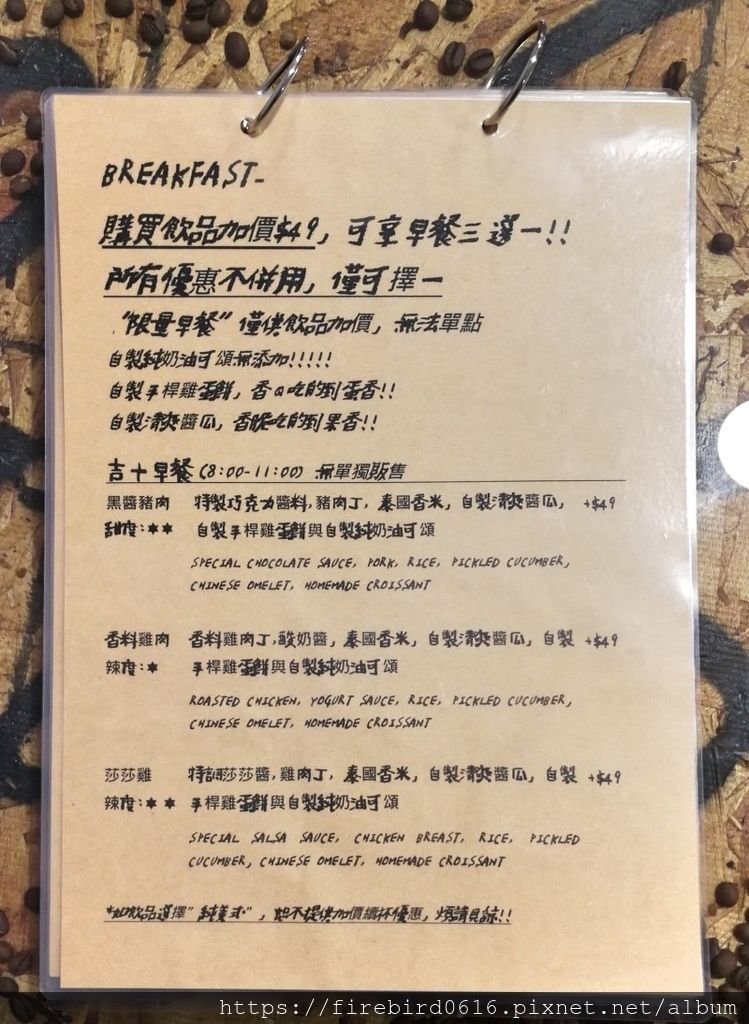 BREAKFAST-
購買飲品加價$49，可享早餐三選一!!
所有優惠不併用，僅可擇一
"限量早餐"僅供飲品加價，無法單點
自製純奶油可頌無添加!!!!!
自製手桿雞蛋餅，香Q吃的到蛋香!!
自製清爽醬瓜，香脆吃的到果香!!
吉十早餐(8:00-11:00) 無單獨販售
黑醬豬肉 特製巧克力醬料，豬肉丁，泰國香米，自製清爽醬瓜， +$49
甜度:★★ 自製手桿雞蛋餅與自製純奶油可頌
SPECIAL CHOCOLATE SAUCE, PORK, RICE, PICKLED CUCUMBER,
CHINESE OMELET, HOMEMADE CROISSANT
香料雞肉 香料雞肉丁，酸奶醬，泰國香米，自製清爽醬瓜，自製 +$49
辣度:★ 手桿雞蛋餅與自製純奶油可頌
ROASTED CHICKEN, YOGURT SAUCE, RICE, PICKLED CUCUMBER,
CHINESE OMELET, HOMEMADE CROISSANT
莎莎雞 特調莎莎醬，雞肉丁，泰國香米，自製清爽醬瓜，自製 +$49
辣度:★★ 手桿雞蛋餅與自製純奶油可頌
SPECIAL SALSA SAUCE, CHICKEN BREAST, RICE, PICKLED
CUCUMBER, CHINESE OMELET, HOMEMADE CROISSANT
*如飲品選擇"純美式"，恕不提供加價續杯優惠，煩請見諒!!
https://firebird0616.pixnet.net/album